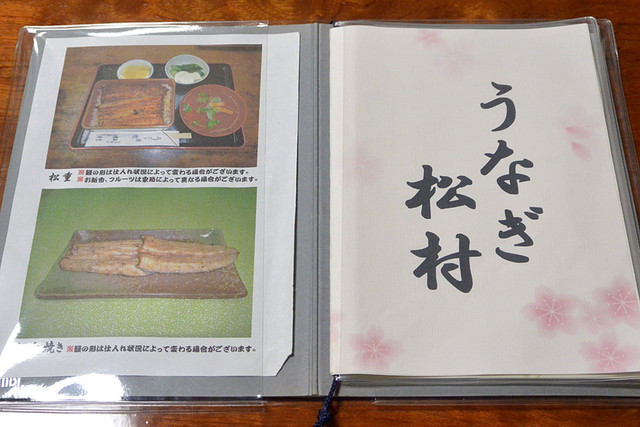 松重
※鰻の形は仕入れ状況によって変わる場合がございます。
※お新香、フルーツは季節によって異なる場合がございます。
焼き
※鰻の形は仕入れ状況によって変わる場合がございます。
うなぎ
松村